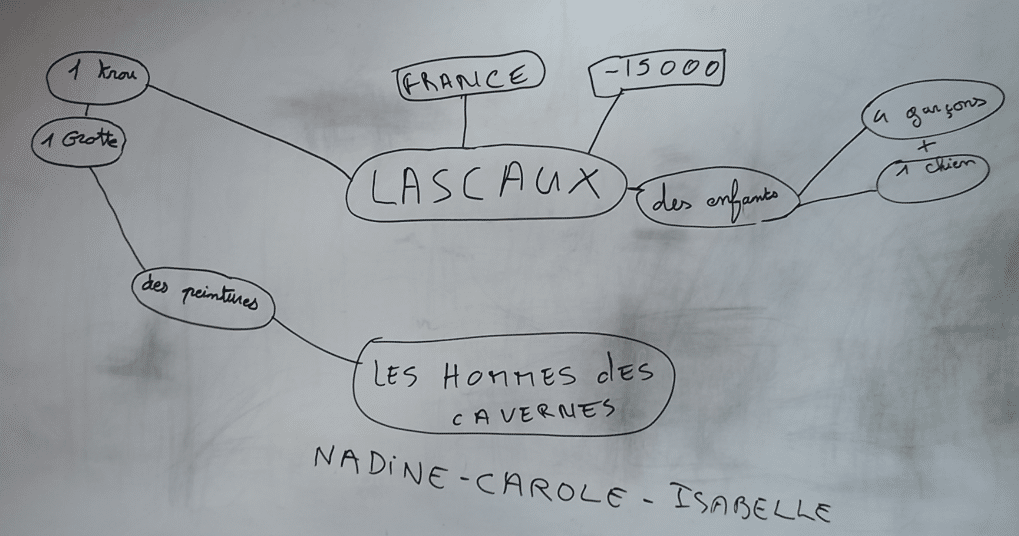 1 trou
FRANCE
-15000
1 Grotte
4 garçons
+
1 chien
LASCAUX
des enfants
des peintures
LES HOMMES dES
CAVERNES
NADiNE - CAROLE - ISABELLE